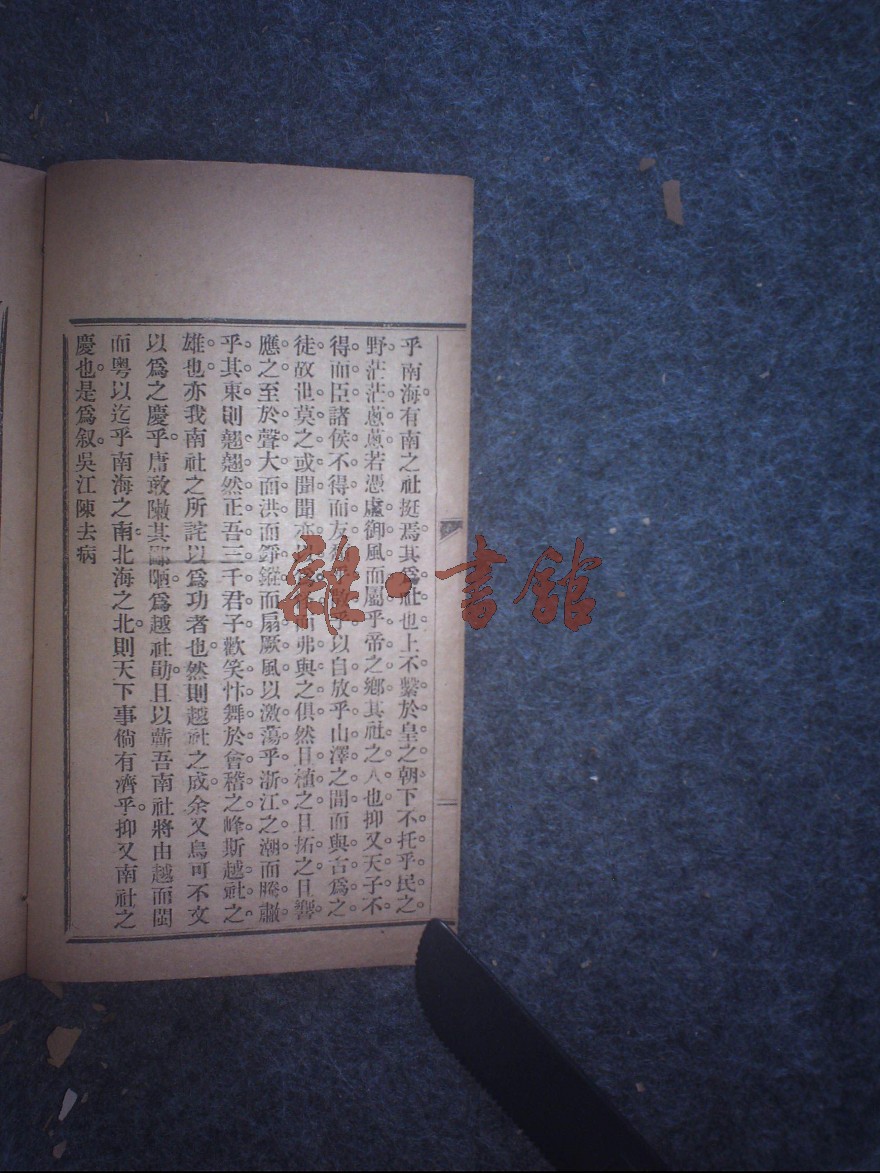 乎南海有南之社挺焉其爲社也上不繫於皇之朝下不托乎民之
野茫茫蒽蒽若憑虛御風而屬乎帝之鄉其社之人也抑又天子不
得而臣諸侯不得而友 乎以自放乎山澤之間而與古爲之
徒故世莫之或聞聞亦 而弗與之俱然日植之日拓之日響
應之至於聲大而洪而錚鏦而扇厥風以激蕩乎浙江之潮而騰瀜
乎其東則翹翹然正吾三千君子歡笑忭舞於會稽之峰斯越社之
雄也亦我南社之所詫以爲功者也然則越社之成余又烏可不文
以爲之慶乎庸敢黻其鄙陋爲越社勖且以蘄吾南社將由越而閩
而粤以迄乎南海之南北海之北則天下事倘有濟乎抑又南社之
慶也是爲叙吳江陳去病
雜·書館